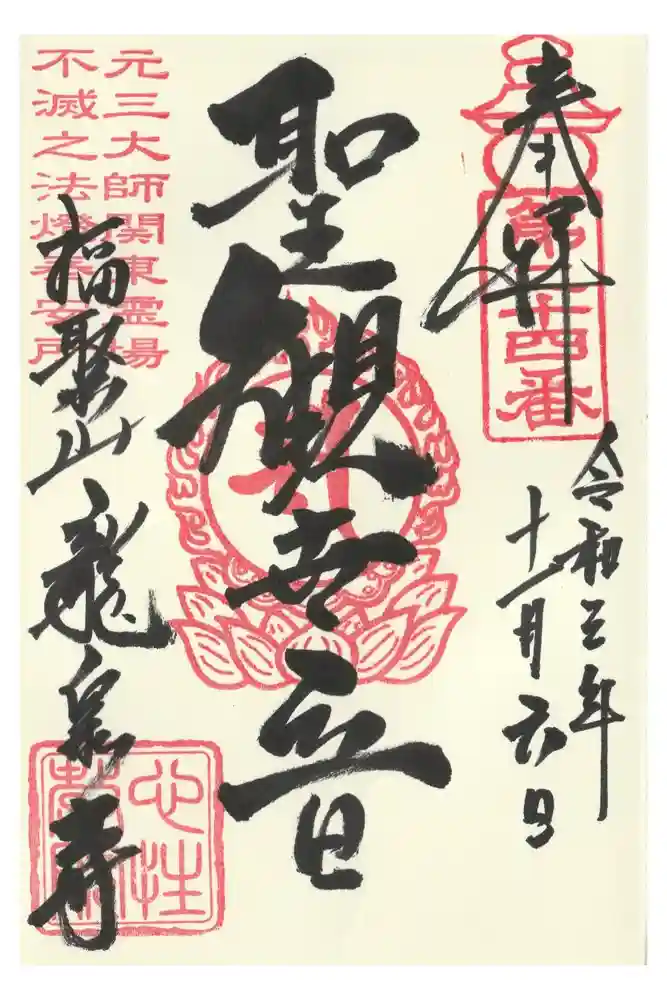 奉拝
第二十四番
令和三年
十一月六日
聖観世音
元三大師関東霊場
不滅之法燈奉安所
福聚山 龍泉寺
心性